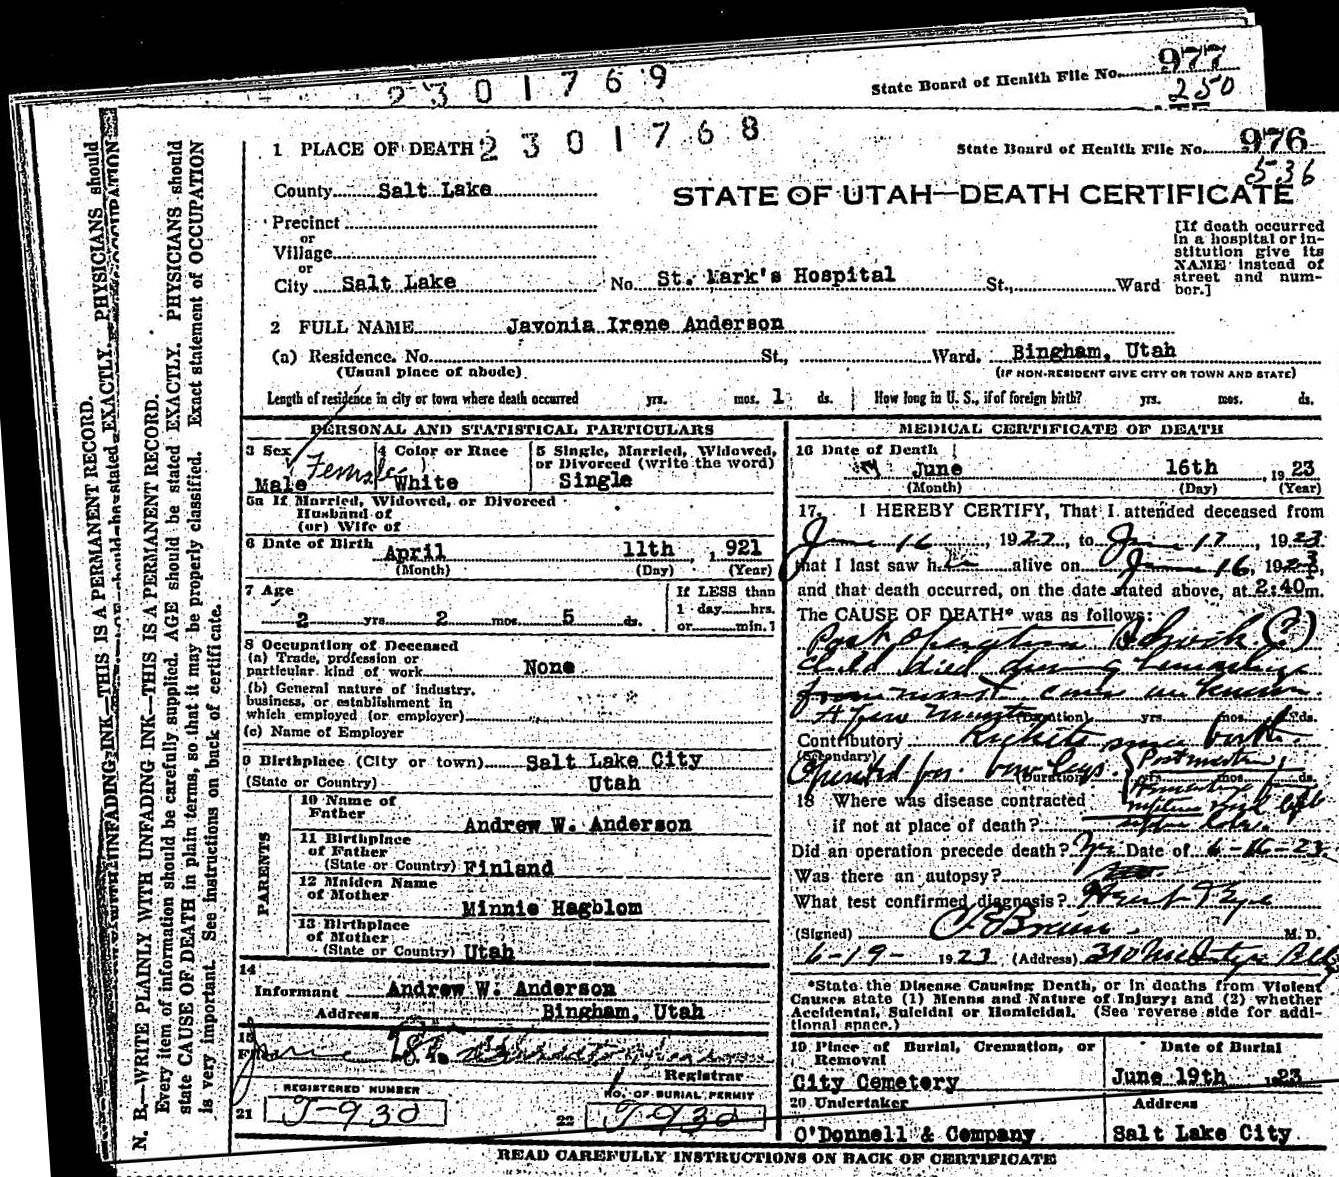 2301769
State Board of Health File No. 977
250
1 PLACE OF DEATH 2301768
State Board of Health File No. 976
536
County Salt Lake
STATE OF UTAH—DEATH CERTIFICATE
Precinct
or
Village
or
City Salt Lake No. St. Mark's Hospital St., Ward
[If death occurred in a hospital or institution give its NAME instead of street and number.]
2 FULL NAME Javonia Irene Anderson
(a) Residence. No. St., Ward. Bingham, Utah
(Usual place of abode) (IF NON-RESIDENT GIVE CITY OR TOWN AND STATE)
Length of residence in city or town where death occurred yrs. mos. 1 ds. How long in U. S., if of foreign birth? yrs. mos. ds.
PERSONAL AND STATISTICAL PARTICULARS
3 Sex Male Female
4 Color or Race White
5 Single, Married, Widowed, or Divorced (write the word) Single
5a If Married, Widowed, or Divorced
Husband of
(or) Wife of
6 Date of Birth April 11th, 921
(Month) (Day) (Year)
7 Age 2 yrs. 2 mos. 5 ds.
If LESS than 1 day hrs. or min.1
8 Occupation of Deceased
(a) Trade, profession or particular kind of work None
(b) General nature of industry, business, or establishment in which employed (or employer)
(c) Name of Employer
9 Birthplace (City or town) Salt Lake City
(State or Country) Utah
PARENTS
10 Name of Father Andrew W. Anderson
11 Birthplace of Father (State or Country) Finland
12 Maiden Name of Mother Minnie Hagblom
13 Birthplace of Mother (State or Country) Utah
14
Informant Andrew W. Anderson
Address Bingham, Utah
15
June
Registrar
REGISTERED NUMBER
21 J-930
NO. OF BURIAL PERMIT
22 J-930
MEDICAL CERTIFICATE OF DEATH
16 Date of Death
June 16th, 1923
(Month) (Day) (Year)
17. I HEREBY CERTIFY, That I attended deceased from
June 16, 1922, to June 17, 1923
that I last saw h alive on June 16, 1923,
and that death occurred, on the date stated above, at 2:40 m.
The CAUSE OF DEATH* was as follows:
Post Operation Shock (?)
child died during
(Duration) yrs. mos. ds.
Contributory Rickets since birth.
(Secondary)
Operated for bow legs. Postmortem
(Duration) yrs. mos. ds.
18 Where was disease contracted
if not at place of death?
Did an operation precede death? Yes Date of 6-16-23
Was there an autopsy?
What test confirmed diagnosis?
(Signed) M. D.
6-19- 1923 (Address)
*State the Disease Causing Death, or in deaths from Violent Causes state (1) Means and Nature of Injury; and (2) whether Accidental, Suicidal or Homicidal. (See reverse side for additional space.)
19 Place of Burial, Cremation, or Removal
City Cemetery
Date of Burial
June 19th 1923
20 Undertaker
O'Donnell & Company
Address
Salt Lake City
READ CAREFULLY INSTRUCTIONS ON BACK OF CERTIFICATE
N. B.—WRITE PLAINLY WITH UNFADING INK—THIS IS A PERMANENT RECORD.
Every item of information should be carefully supplied. AGE should be stated EXACTLY. PHYSICIANS should
state CAUSE OF DEATH in plain terms, so that it may be properly classified. Exact statement of OCCUPATION
is very important. See instructions on back of certificate.